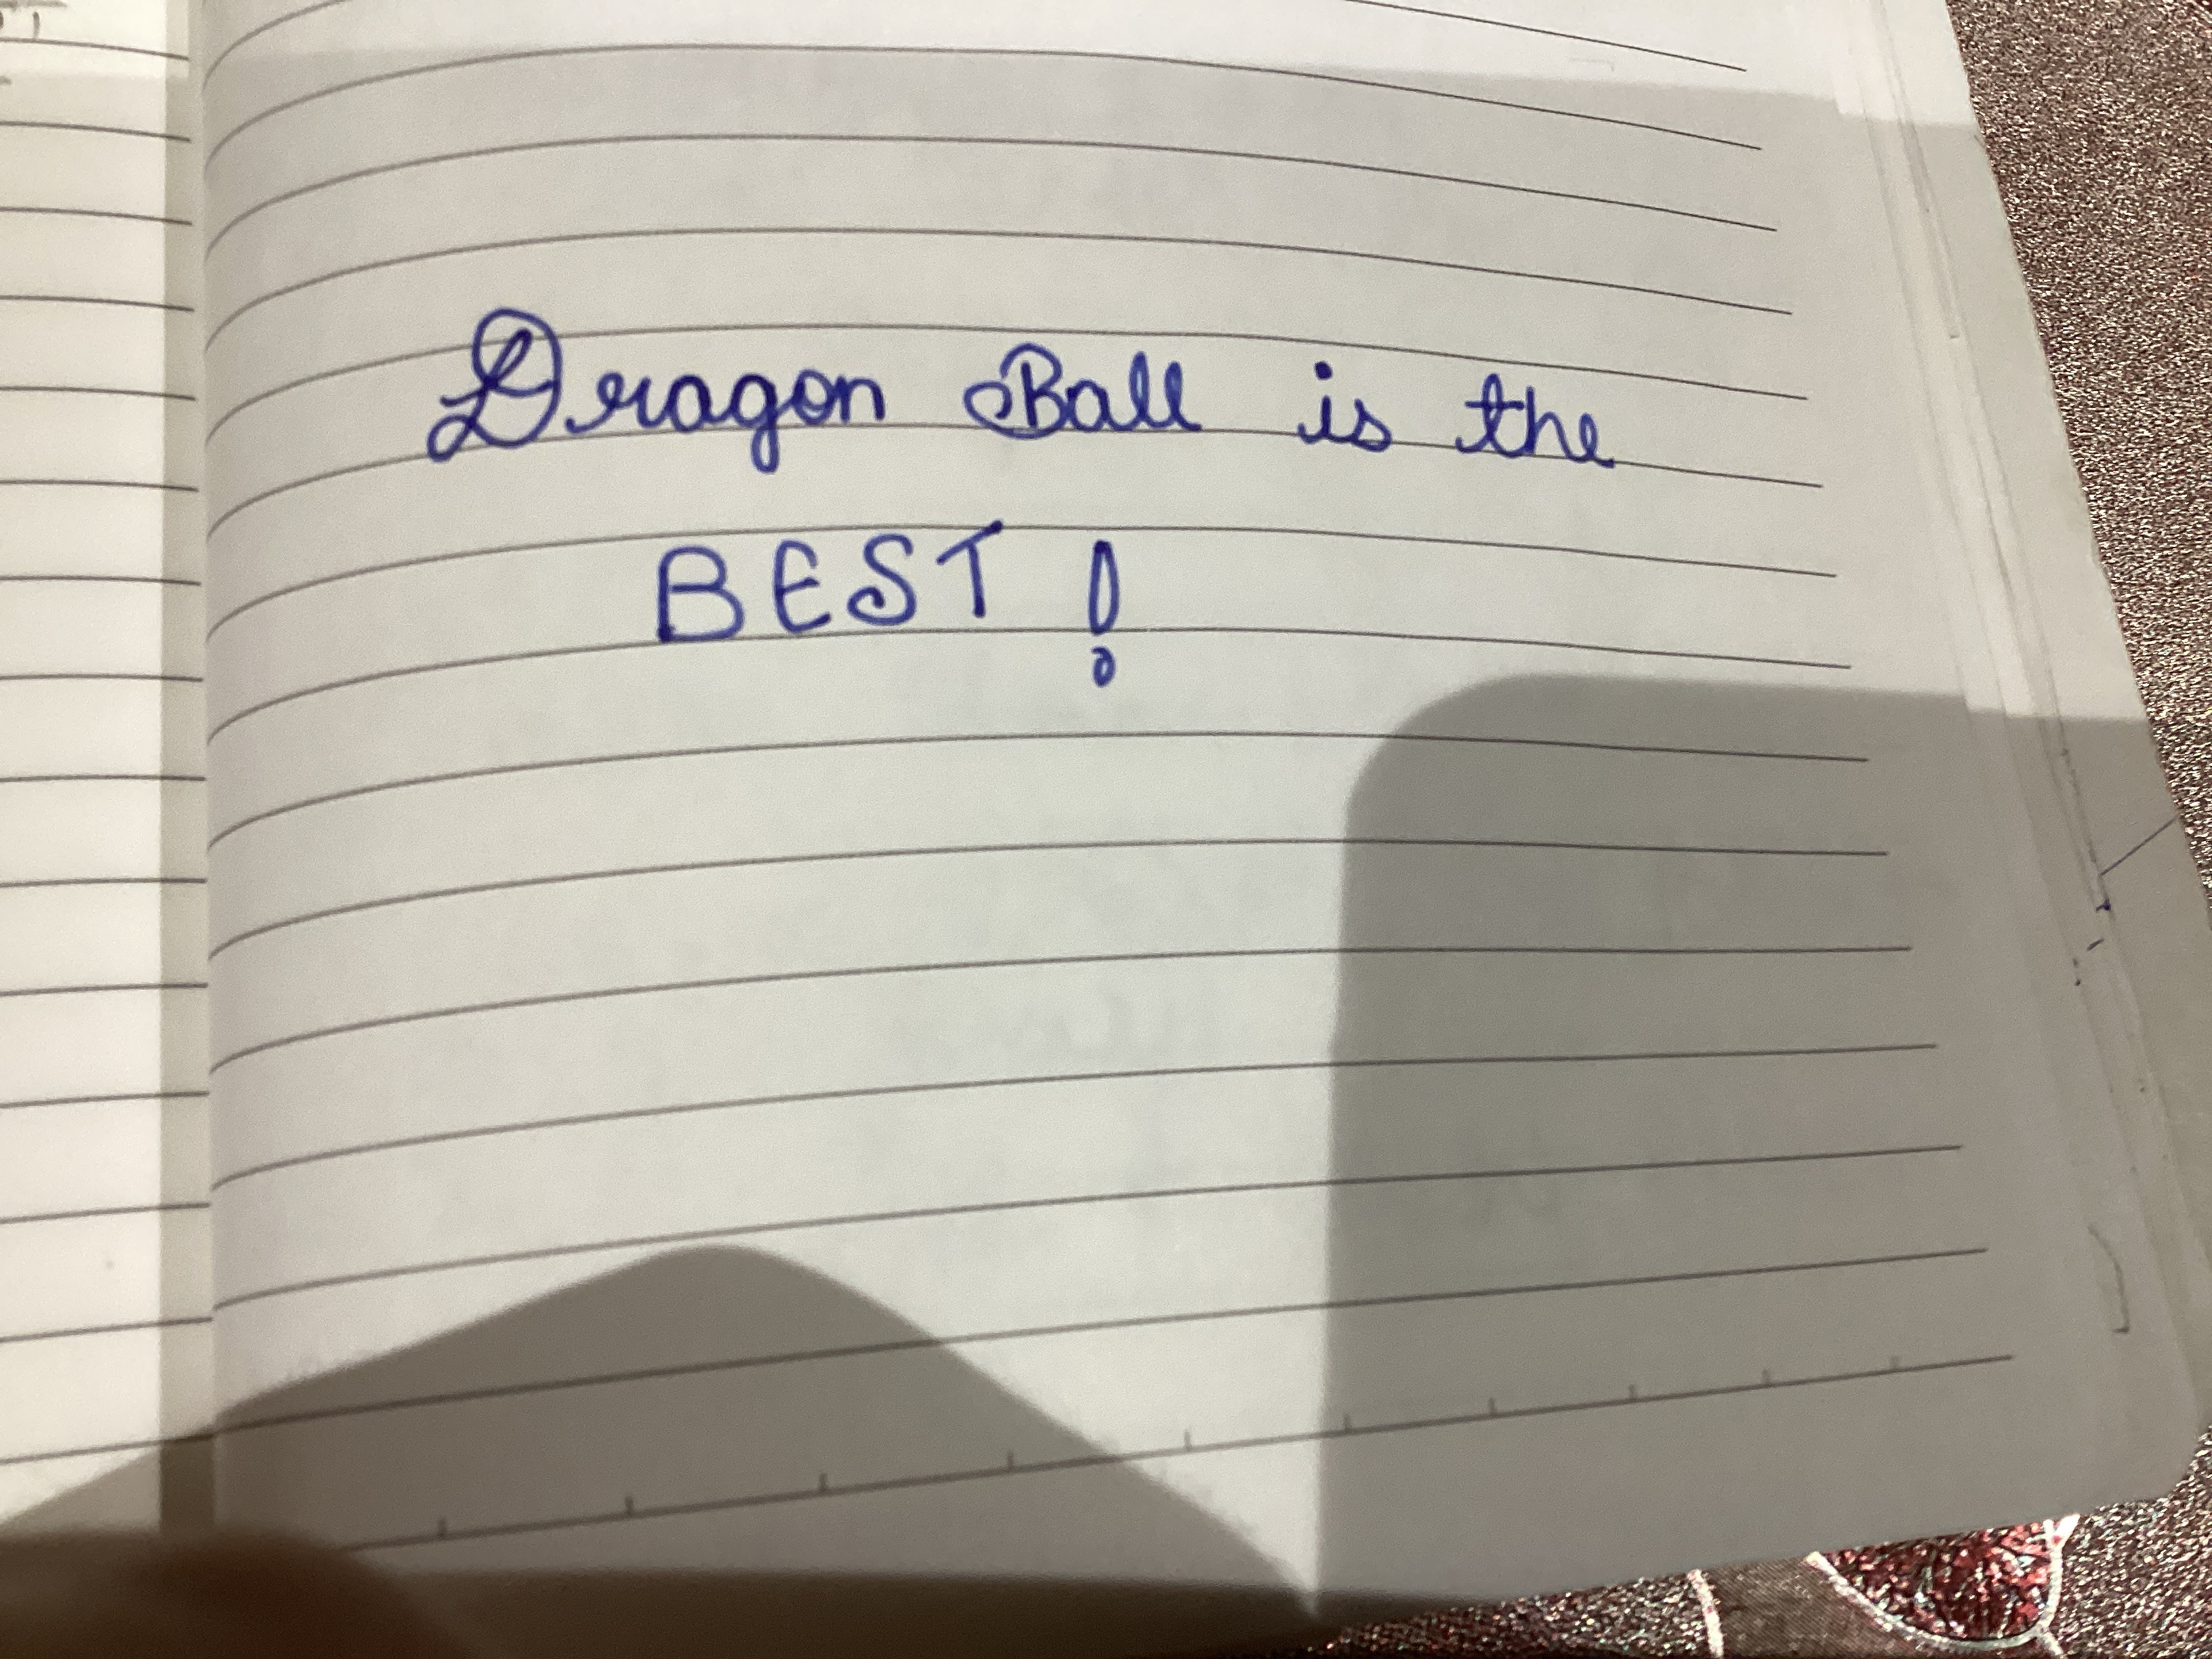 Dragon Ball is the
BEST !